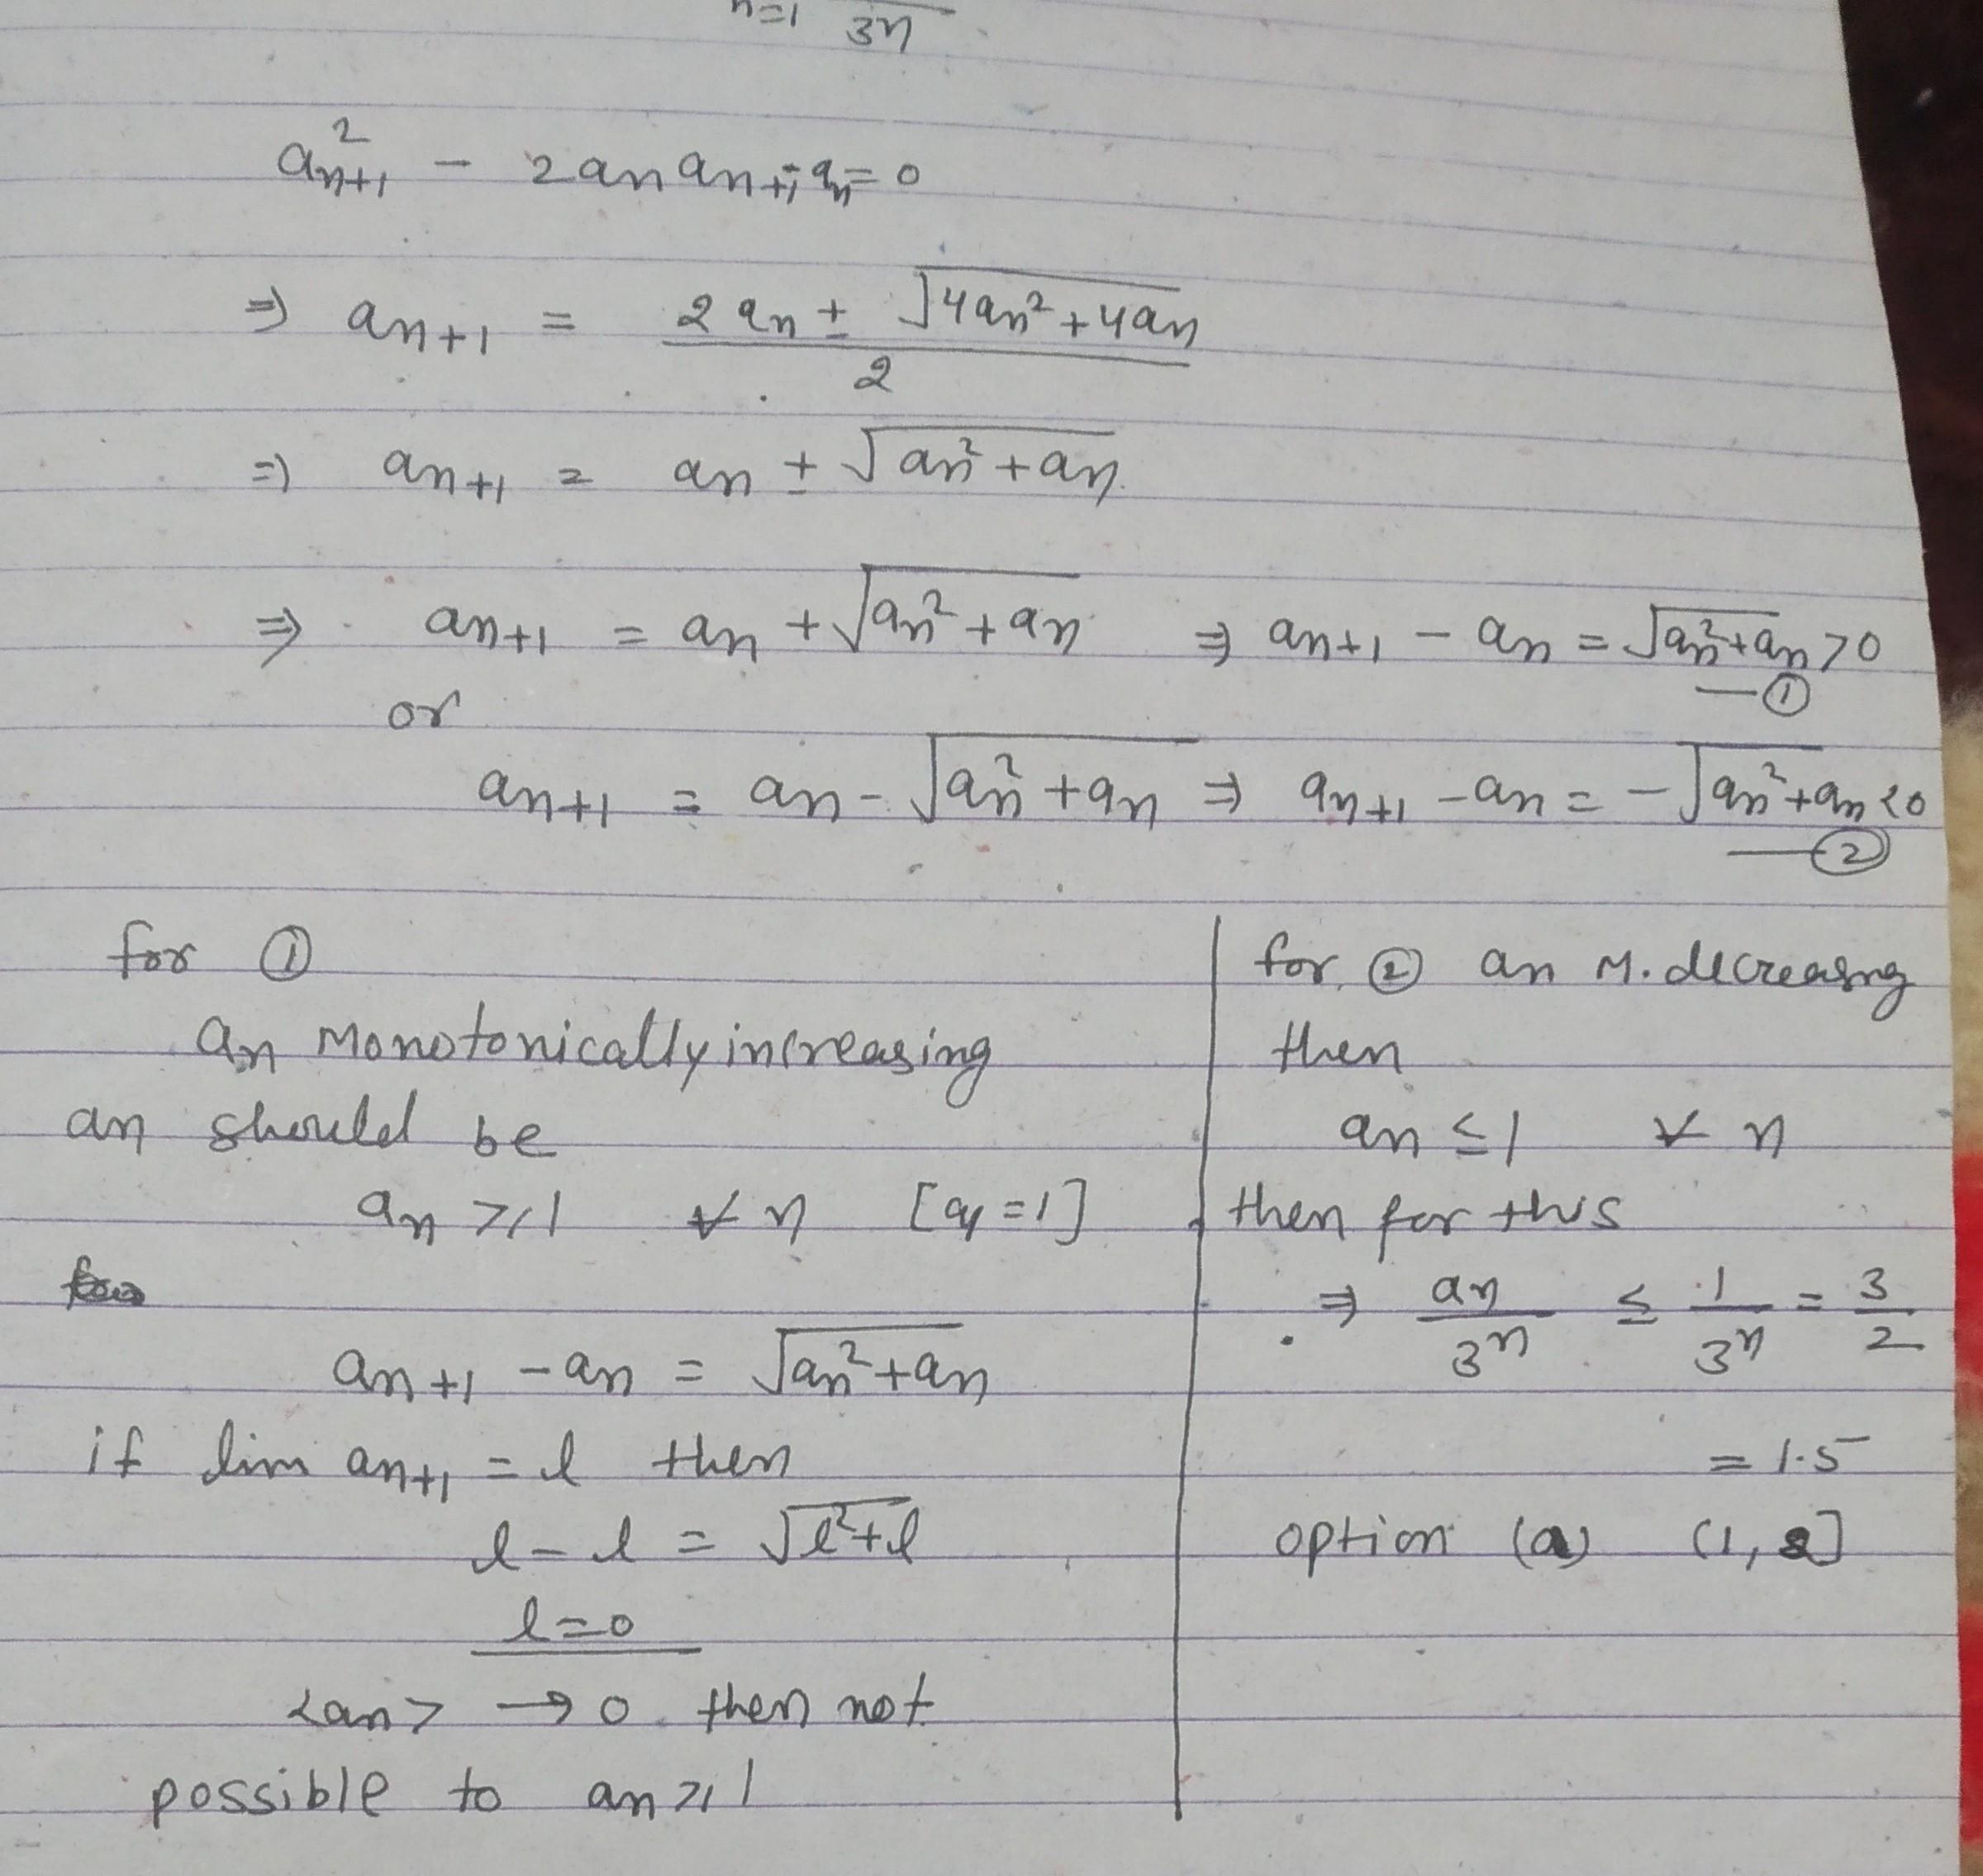 n=1 3n
a²ₙ₊₁ - 2aₙ aₙ₊₁ - aₙ = 0
⇒ aₙ₊₁ = (2aₙ ± √(4aₙ² + 4aₙ)) / 2
⇒ aₙ₊₁ = aₙ ± √(aₙ² + aₙ).
⇒ aₙ₊₁ = aₙ + √(aₙ² + aₙ) ⇒ aₙ₊₁ - aₙ = √(aₙ² + aₙ) > 0
— ①
or
aₙ₊₁ = aₙ - √(aₙ² + aₙ) ⇒ aₙ₊₁ - aₙ = -√(aₙ² + aₙ) < 0
— ②
for ①
aₙ Monotonically increasing
an should be
aₙ ≥ 1 ∀ n [a₁ = 1]
aₙ₊₁ - aₙ = √(aₙ² + aₙ)
if lim aₙ₊₁ = l then
l - l = √(l² + l)
l = 0
<an> → 0 then not
possible to an ≥ 1
for ② an M. decreasing
then
an ≤ 1 ∀ n
then for this
⇒ aₙ/3ⁿ ≤ 1/3ⁿ = 3/2
= 1.5
option (a) (1, 2]